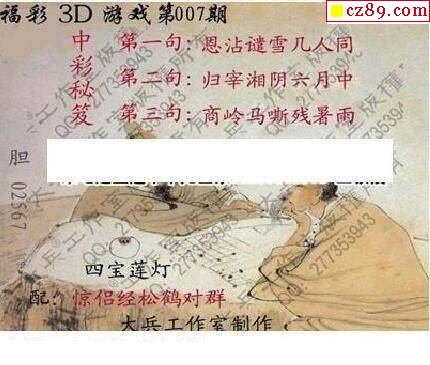 cz89.com
福彩 3D 游戏第007期
中彩秘笈
第一句:恩沾谴雪几人同
第二句:归宰湘阴六月中
第三句:商岭马嘶残暑雨
胆 02367
四宝莲灯
配:惊侣经松鹤对群
大兵工作室制作
大兵工作室版权所有
QQ:277353943